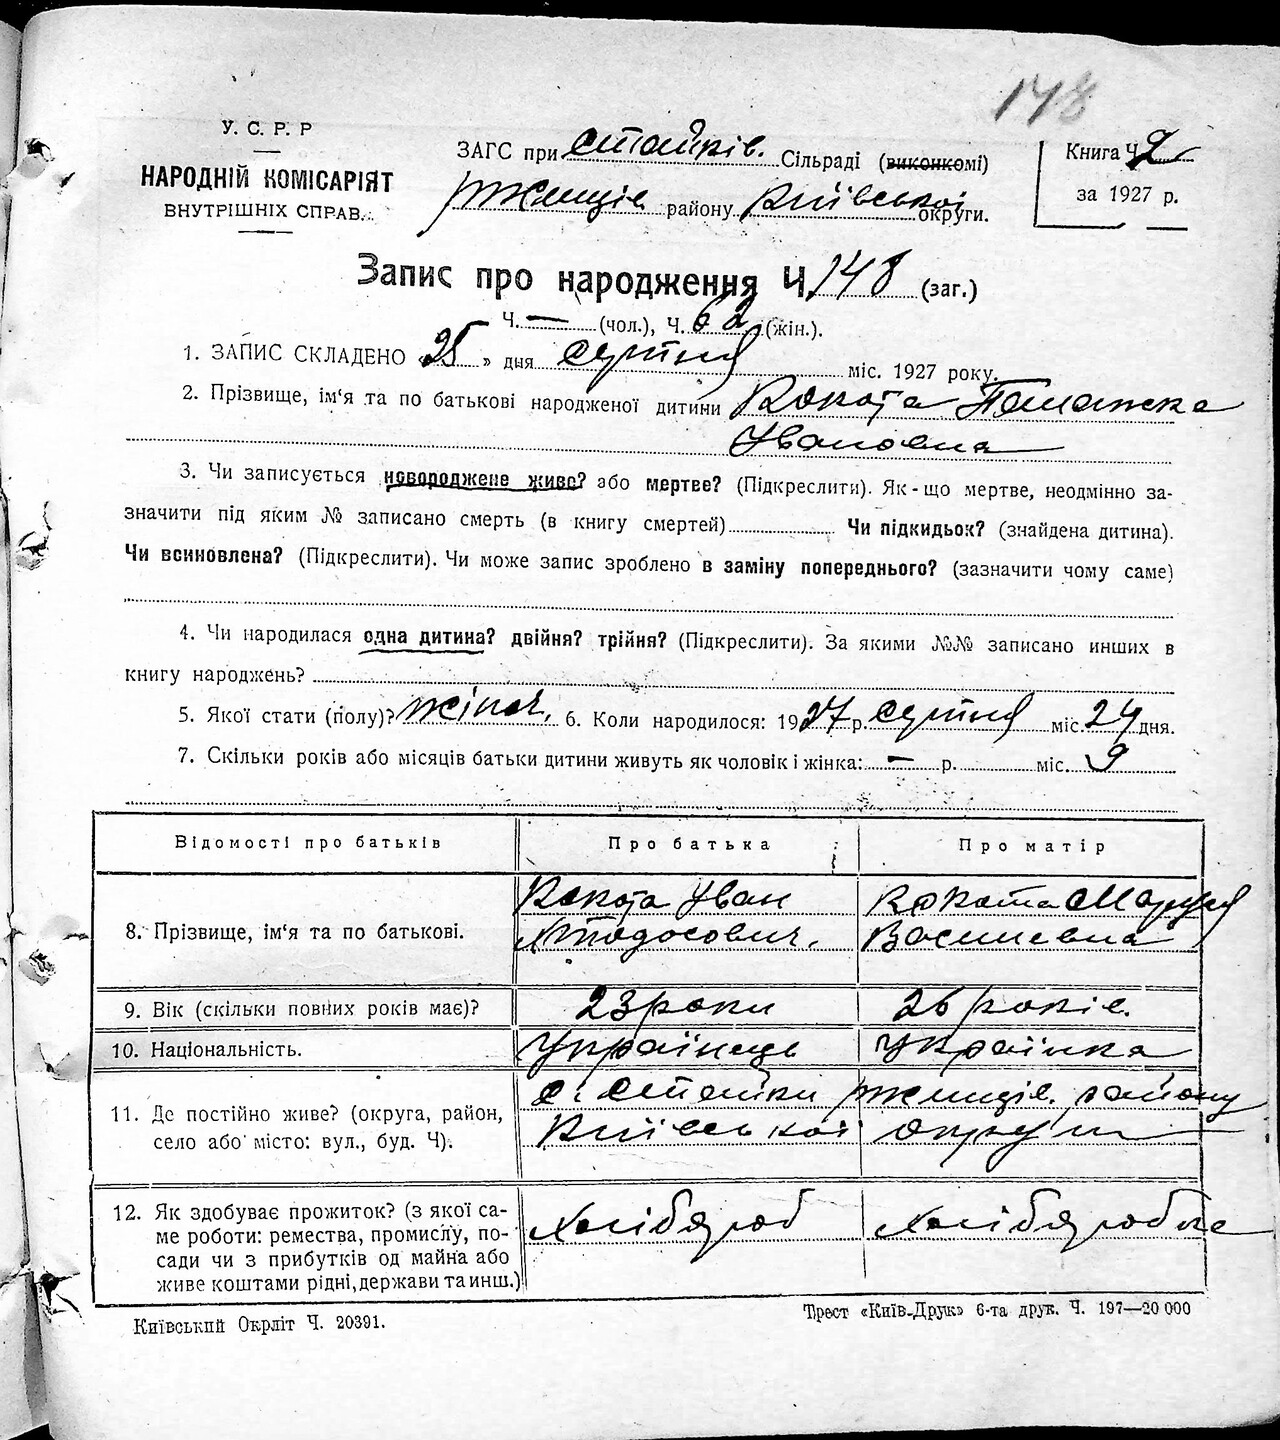 148
У. С. Р. Р
НАРОДНІЙ КОМІСАРІЯТ
ВНУТРІШНІХ СПРАВ.
ЗАГС при Стайків. Сільраді (виконкомі)
Ржищів району Київської округи.
Книга Ч. 2
за 1927 р.
Запис про народження Ч. 148 (заг.)
Ч. — (чол.), Ч. 62 (жін.).
1. ЗАПИС СКЛАДЕНО «25» дня серпня міс. 1927 року.
2. Прізвище, ім‘я та по батькові народженої дитини Кокота
Ивановна
3. Чи записується новороджене живе? або мертве? (Підкреслити). Як-що мертве, неодмінно за-
значити під яким № записано смерть (в книгу смертей) Чи підкидьок? (знайдена дитина).
Чи всиновлена? (Підкреслити). Чи може запис зроблено в заміну попереднього? (зазначити чому саме)
4. Чи народилася одна дитина? двійня? трійня? (Підкреслити). За якими №№ записано инших в
книгу народжень?
5. Якої стати (полу)? жіноч. 6. Коли народилося: 1927 р. серпня міс. 24 дня.
7. Скільки років або місяців батьки дитини живуть як чоловік і жінка: — р. міс. 9
Відомості про батьків
Про батька
Про матір
8. Прізвище, ім‘я та по батькові.
Кокота Иван
Тодосович.
Кокота Маруся
Василевна
9. Вік (скільки повних років має)?
23 роки
26 років.
10. Національність.
Українець
Українка
11. Де постійно живе? (округа, район,
село або місто: вул., буд. Ч).
с. Стайки Ржищів. району
Київської округи
12. Як здобуває прожиток? (з якої са-
ме роботи: ремества, промислу, по-
сади чи з прибутків од майна або
живе коштами рідні, держави та инш.)
Хлібороб
Хліборобка
Київський Окрліт Ч. 20391.
Трест «Київ-Друк» 6-та друк. Ч. 197—20 000